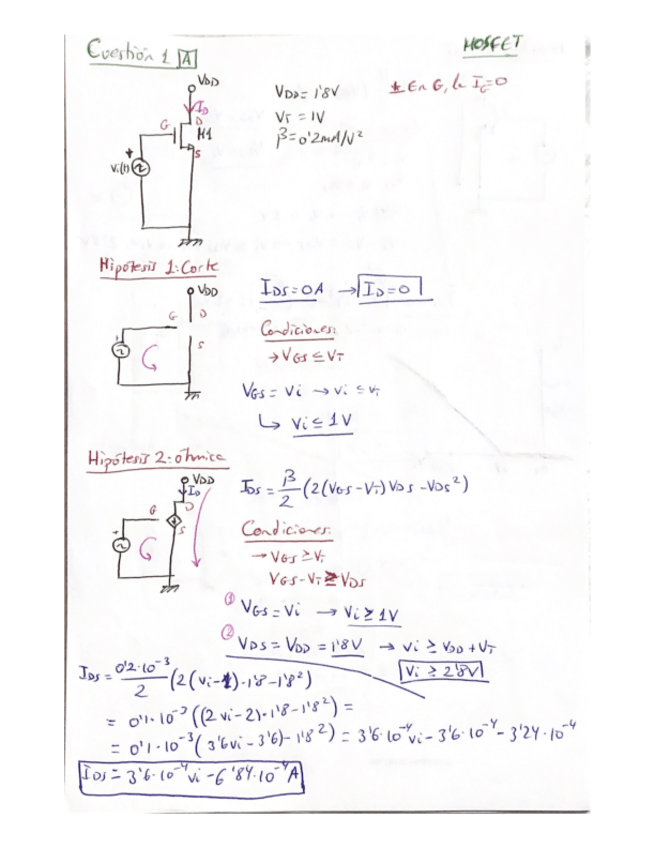 Cuestión 1 A
MOSFET
VDD
ID
D
G
M1
S
+
Vi(t)
VDD = 1'8V
VT = 1V
β = 0'2mA/V²
* En G, la IG=0
Hipótesis 1: Corte
VDD
G D
S
IDS = 0A → ID = 0
Condiciones:
→ VGS ≤ VT
VGS = Vi → vi ≤ VT
↳ Vi ≤ 1V
Hipótesis 2: óhmica
VDD
ID
G D
S
IDS = β/2 (2(VGS - VT) VDS - VDS²)
Condiciones:
→ VGS ≥ VT
VGS - VT ≥ VDS
① VGS = Vi → Vi ≥ 1V
② VDS = VDD = 1'8V → vi ≥ VDD + VT
Vi ≥ 2'8V
IDS = 0'2·10⁻³/2 (2(vi-1)·1'8 - 1'8²)
= 0'1·10⁻³ ((2vi-2)·1'8 - 1'8²) =
= 0'1·10⁻³ (3'6vi - 3'6) - 1'8²) = 3'6·10⁻⁴vi - 3'6·10⁻⁴ - 3'24·10⁻⁴
IDS = 3'6·10⁻⁴vi - 6'84·10⁻⁴A